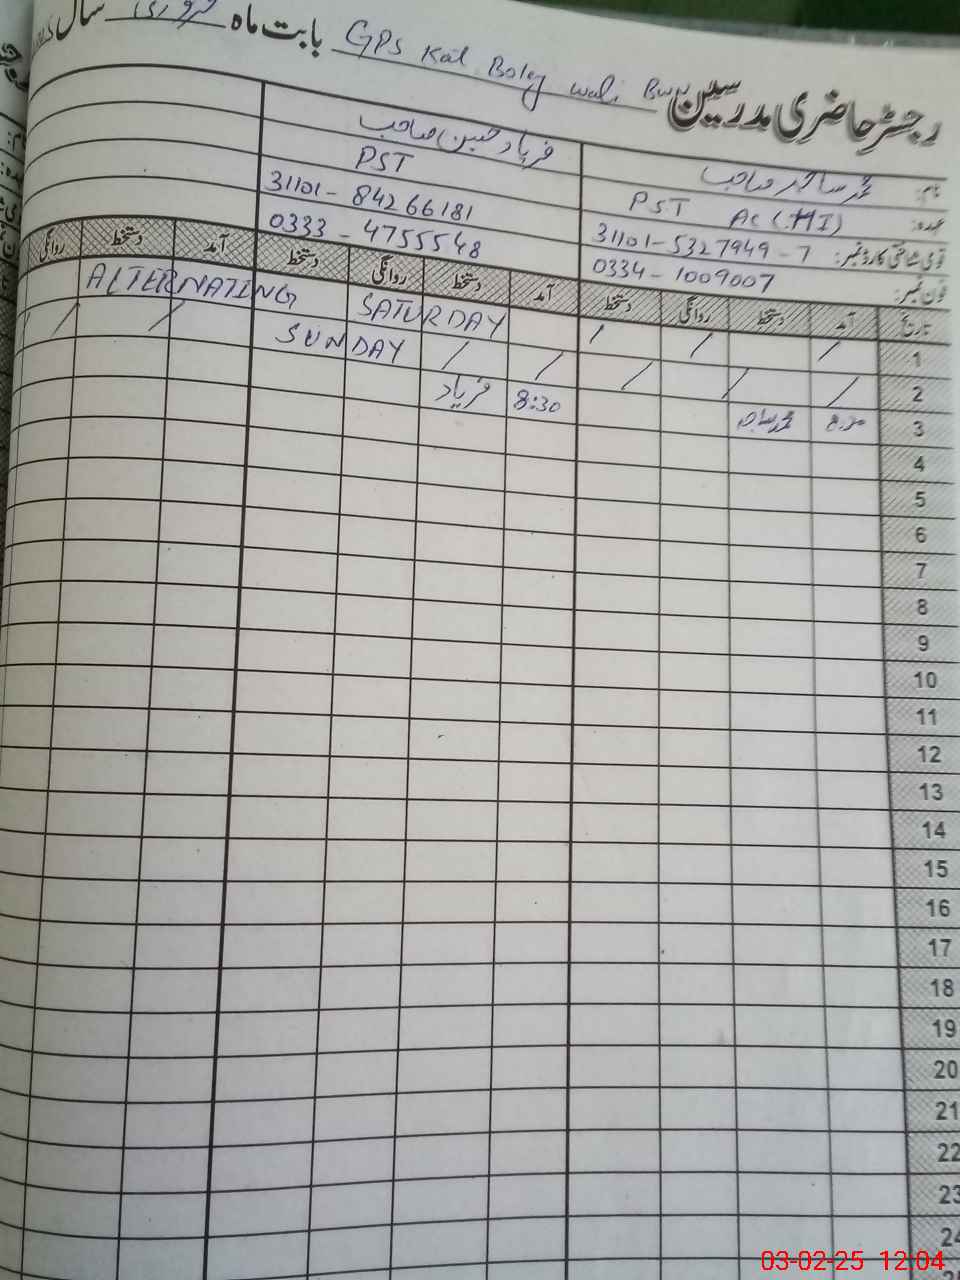 رجسٹر حاضری مدرسین GPS Kot Boley wali Bwn بابت ماہ فروری سال
نام: محمد ساجد صاحب فریاد حسین صاحب
عہدہ: PST AC (:HI) PST
قومی شناختی کارڈ نمبر: 31101-5327949-7 31101-84266181
فون نمبر: 0334-1009007 0333-4755548
تاریخ آمد دستخط روانگی دستخط آمد دستخط روانگی دستخط آمد دستخط روانگی
1 / / / ALTERNATING SATURDAY
2 / / / / / SUNDAY / /
3 8:30 محمد ساجد 8:30 فریاد
4
5
6
7
8
9
10
11
12
13
14
15
16
17
18
19
20
21
22
23
24
03-02-25 12:04